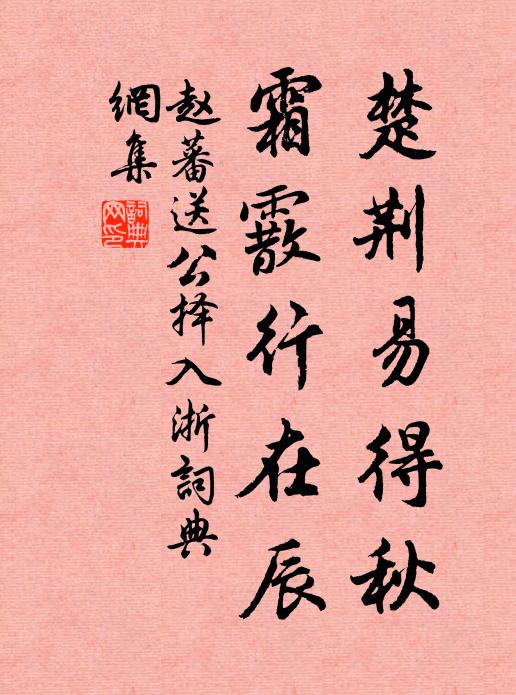 楚荆易得秋
霜霰行在辰
赵蕃送公择入浙詞典
網集
詞典網印